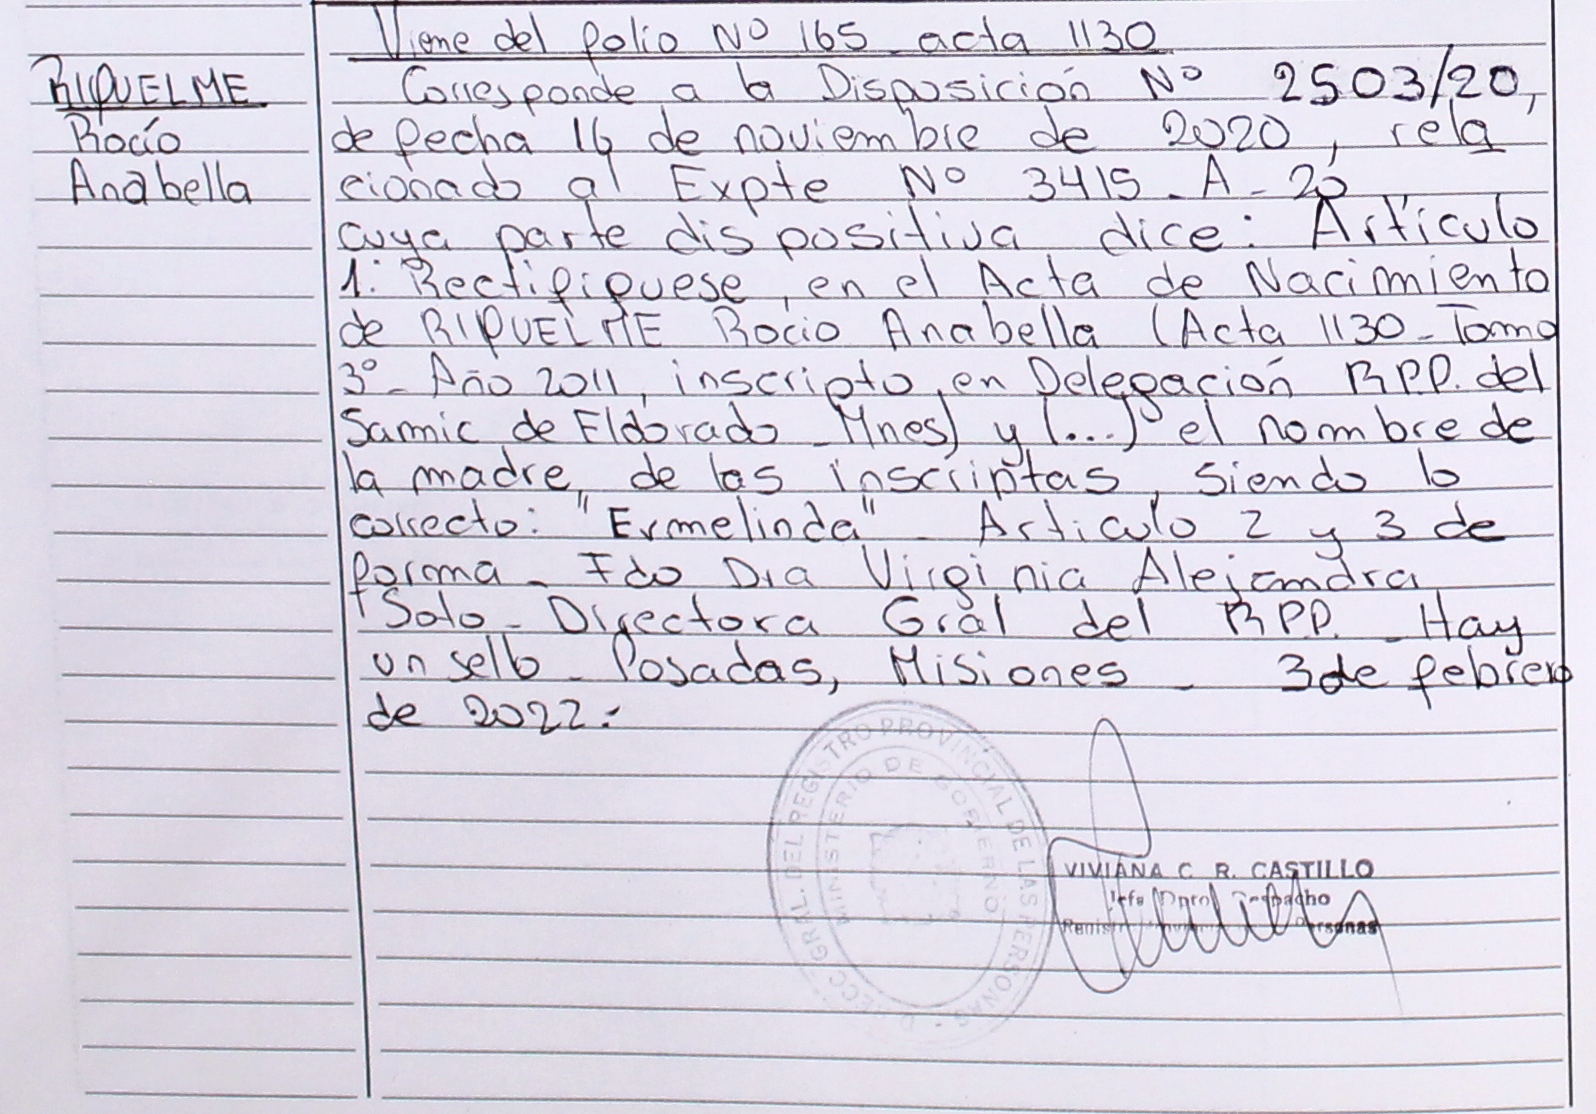 Viene del folio Nº 165 acta 1130
RIQUELME
Rocío
Anabella
Corresponde a la Disposición Nº 2503/20,
de fecha 16 de noviembre de 2020, rela
cionado al Expte Nº 3415-A-20
cuya parte dispositiva dice: Artículo
1: Rectifiquese, en el Acta de Nacimiento
de RIQUELME Rocio Anabella (Acta 1130-Tomo
3º- Año 2011, inscripto en Delegación R.P.P. del
Samic de Eldorado - Mnes) y (...) el nombre de
la madre, de las inscriptas, siendo lo
correcto: "Ermelinda" - Articulo 2 y 3 de
forma - Fdo Dra Virginia Alejandra
Soto - Directora Gral del RPP. - Hay
un sello - Posadas, Misiones - 3 de febrero
de 2022.-
DIRECC. GRAL. DEL REGISTRO PROVINCIAL DE LAS PERSONAS
MINISTERIO DE GOBIERNO
VIVIANA C. R. CASTILLO
Jefa Dpto. Despacho
Personas